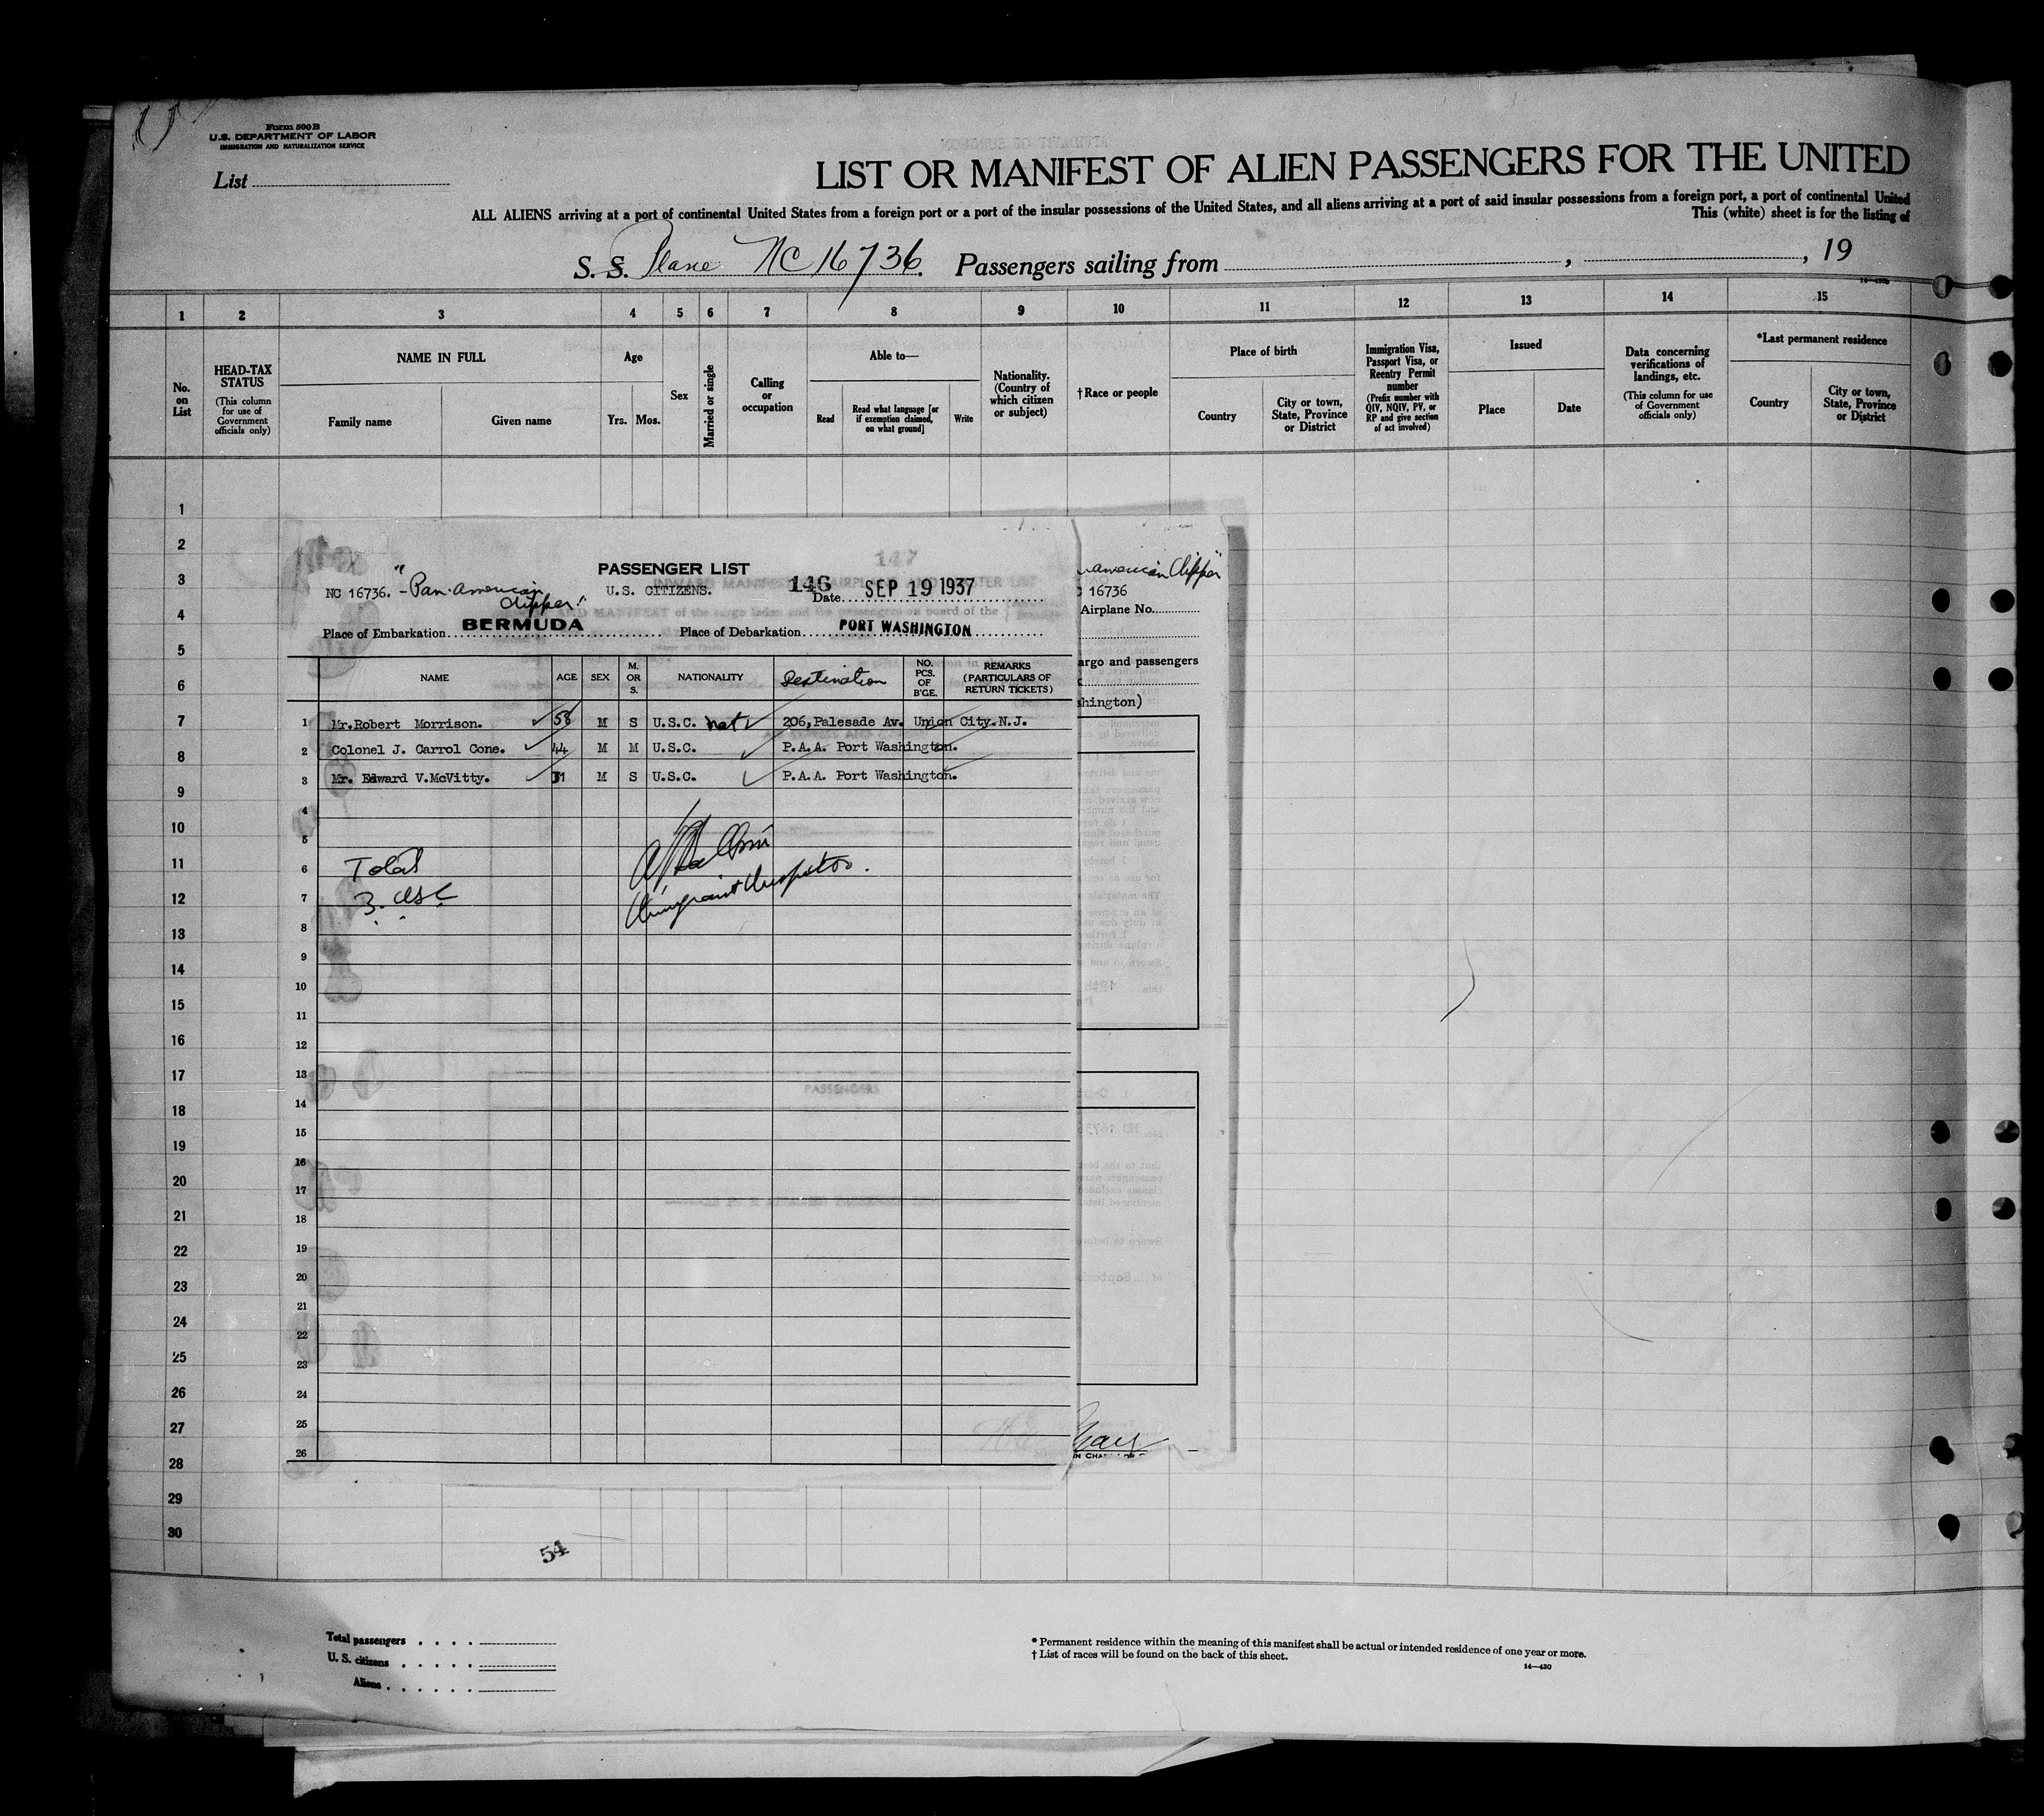 Form 500 B
U.S. DEPARTMENT OF LABOR
IMMIGRATION AND NATURALIZATION SERVICE
List
LIST OR MANIFEST OF ALIEN PASSENGERS FOR THE UNITED
ALL ALIENS arriving at a port of continental United States from a foreign port or a port of the insular possessions of the United States, and all aliens arriving at a port of said insular possessions from a foreign port, a port of continental United
This (white) sheet is for the listing of
S. S. Plane NC 16736. Passengers sailing from , , 19
14—430
1 2 3 4 5 6 7 8 9 10 11 12 13 14 15
No. on List
HEAD-TAX STATUS
(This column for use of Government officials only)
NAME IN FULL
Family name
Given name
Age
Yrs. Mos.
Sex
Married or single
Calling or occupation
Able to—
Read
Read what language [or if exemption claimed, on what ground]
Write
Nationality. (Country of which citizen or subject)
† Race or people
Place of birth
Country
City or town, State, Province or District
Immigration Visa, Passport Visa, or Reentry Permit number
(Prefix number with QIV, NQIV, PV, or RP and give section of act involved)
Issued
Place
Date
Data concerning verifications of landings, etc.
(This column for use of Government officials only)
*Last permanent residence
Country
City or town, State, Province or District
1
2
3
4
5
6
7
8
9
10
11
12
13
14
15
16
17
18
19
20
21
22
23
24
25
26
27
28
29
30
147
PASSENGER LIST
NC 16736. "Pan-American Clipper."
U.S. CITIZENS.
146
Date SEP 19 1937
Place of Embarkation BERMUDA Place of Debarkation PORT WASHINGTON
NAME AGE SEX M. OR S. NATIONALITY Destination NO. PCS. OF B'GE. REMARKS (PARTICULARS OF RETURN TICKETS)
1 Mr.Robert Morrison. 58 M S U.S.C. nat 206,Palesade Av. Union City.N.J.
2 Colonel J. Carrol Cone. 44 M M U.S.C. P.A.A. Port Washington.
3 Mr. Edward V.McVitty. 31 M S U.S.C. P.A.A. Port Washington.
4
5
6 Total
7 3. USC
Immigrant Inspector.
8
9
10
11
12
13
14
15
16
17
18
19
20
21
22
23
24
25
26
american Clipper"
16736
Airplane No.
argo and passengers
shington)
PASSENGERS
54
Total passengers
U. S. citizens
Aliens
* Permanent residence within the meaning of this manifest shall be actual or intended residence of one year or more.
† List of races will be found on the back of this sheet.
14—430